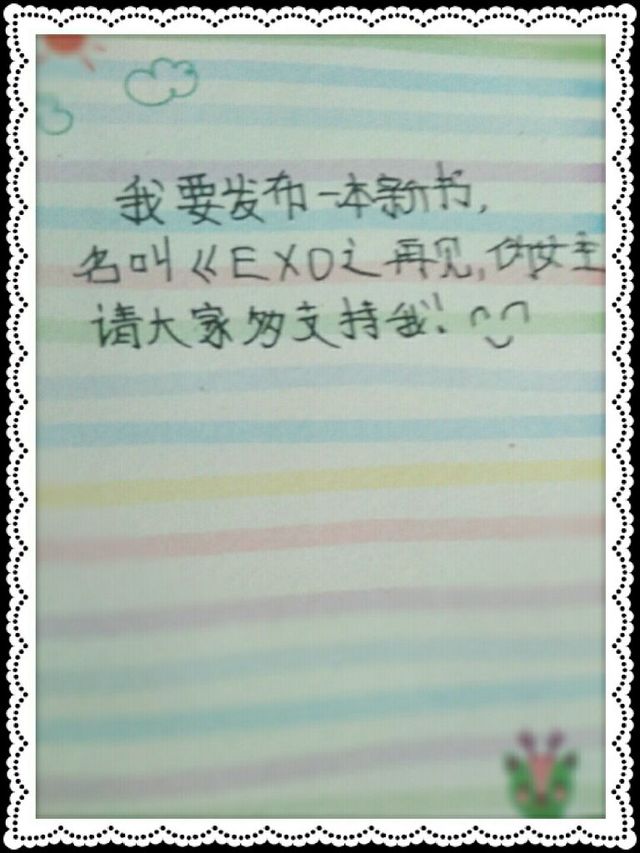 我要发布一本新书,
名叫《EXO之再见,伪女主
请大家多支持我!